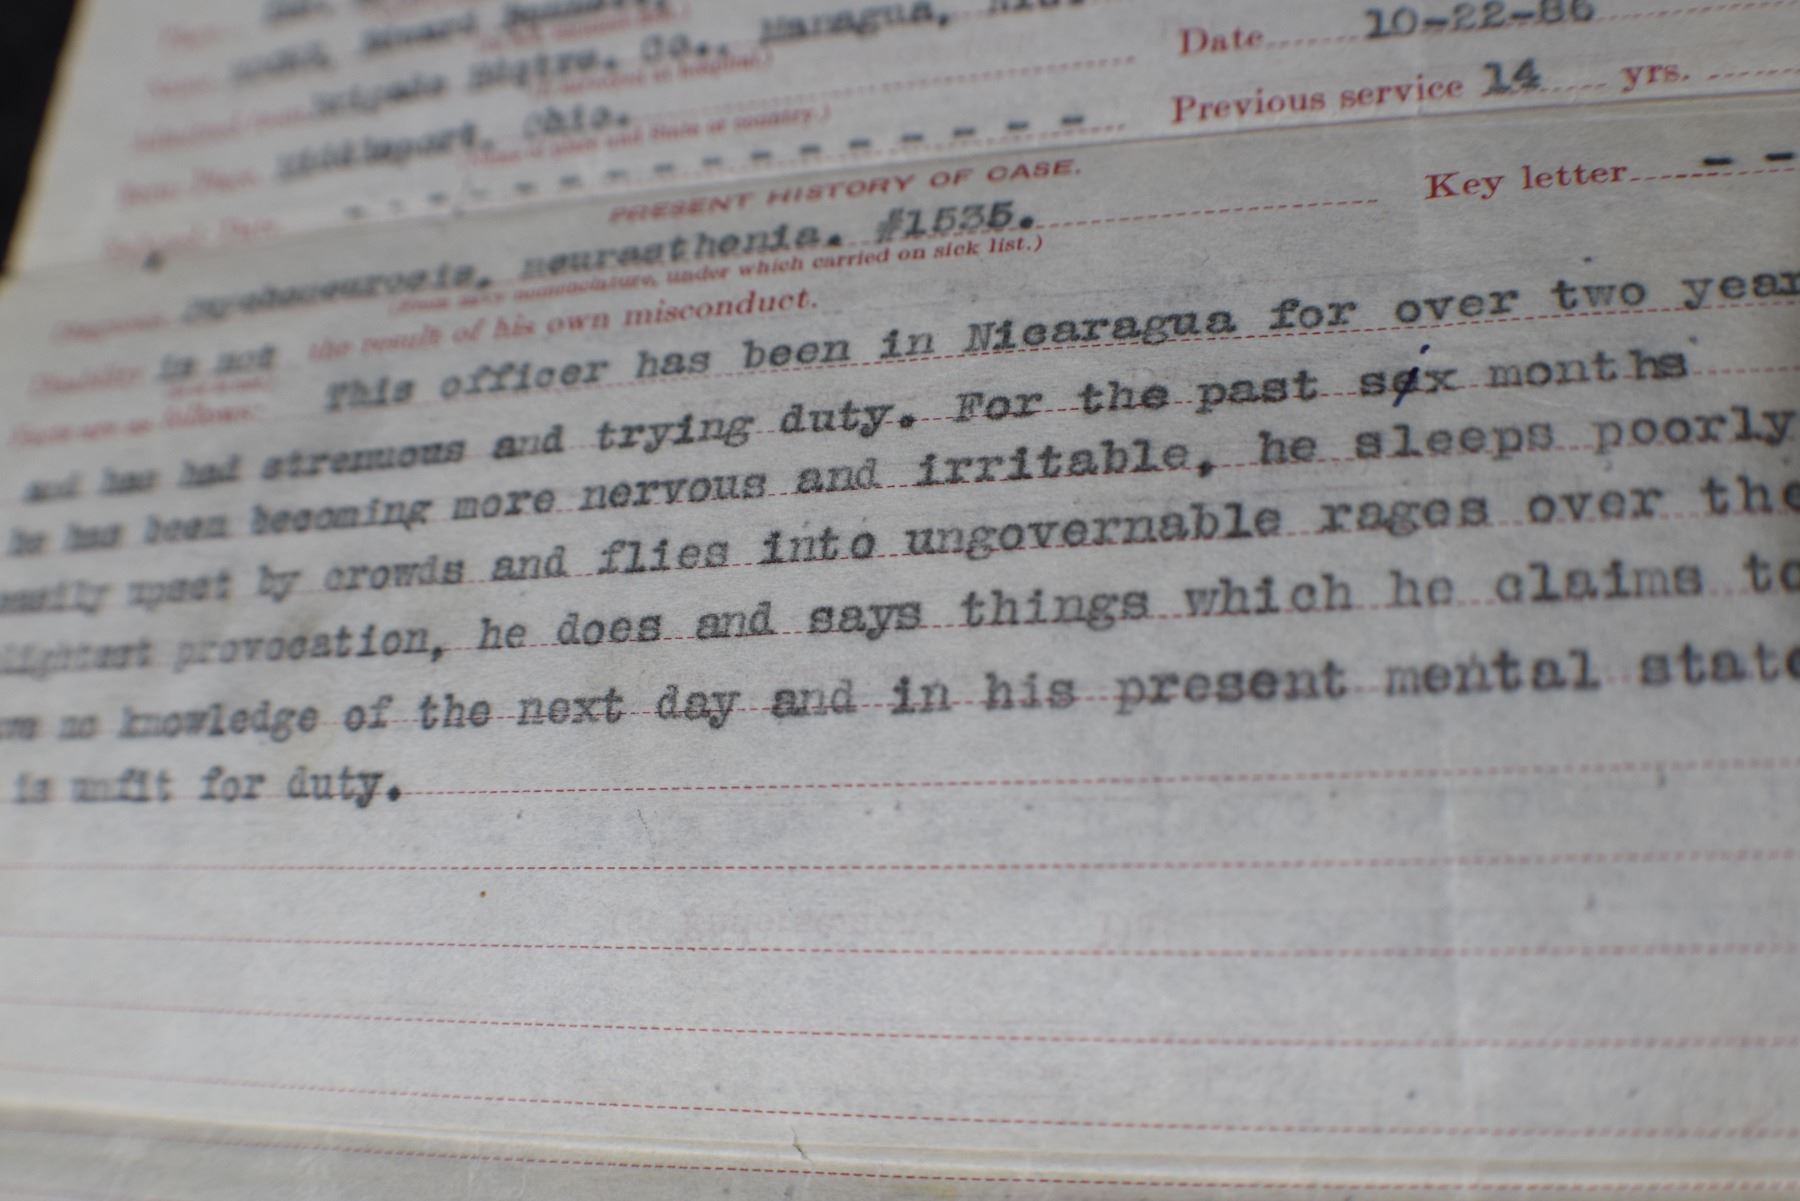 Co., Managua,
Date 10-22-86
Middleport, Ohio.
(Name of place and State or country.)
Previous service 14 yrs.
PRESENT HISTORY OF CASE.
Key letter - -
Psychoneurosis, neurasthenia. #1535.
(From navy nomenclature, under which carried on sick list.)
is not the result of his own misconduct.
follows: This officer has been in Nicaragua for over two year
and has had strenuous and trying duty. For the past six months
he has been becoming more nervous and irritable, he sleeps poorly
easily upset by crowds and flies into ungovernable rages over the
lightest provocation, he does and says things which he claims to
ve no knowledge of the next day and in his present mental state
is unfit for duty.